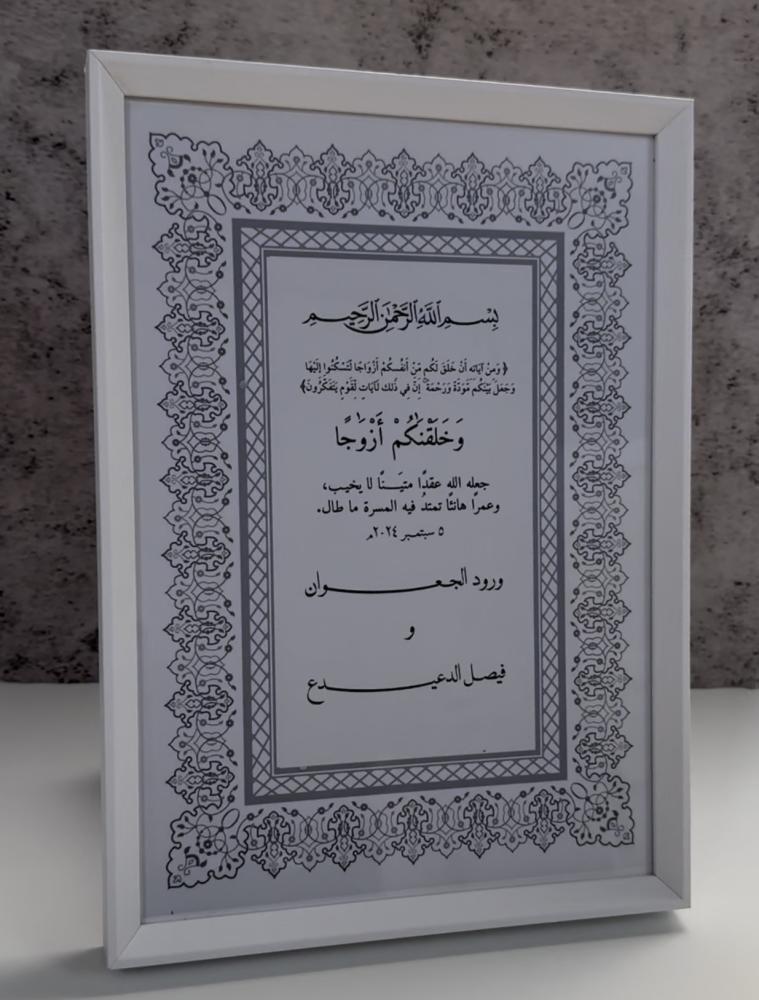 بِسْمِ ٱللَّهِ ٱلرَّحْمَٰنِ ٱلرَّحِيمِ
﴿ وَمِنْ آيَاتِهِ أَنْ خَلَقَ لَكُم مِّنْ أَنفُسِكُمْ أَزْوَاجًا لِّتَسْكُنُوا إِلَيْهَا
وَجَعَلَ بَيْنَكُم مَّوَدَّةً وَرَحْمَةً ۚ إِنَّ فِي ذَٰلِكَ لَآيَاتٍ لِّقَوْمٍ يَتَفَكَّرُونَ﴾
وَخَلَقْنَٰكُمْ أَزْوَٰجًا
جعله الله عقدًا متيَنًا لا يخيب،
وعمرًا هانئًا تمتدُ فيه المسرة ما طال.
٥ سبتمبر ٢٠٢٤م
ورود الجعوان
و
فيصل الدعيدع